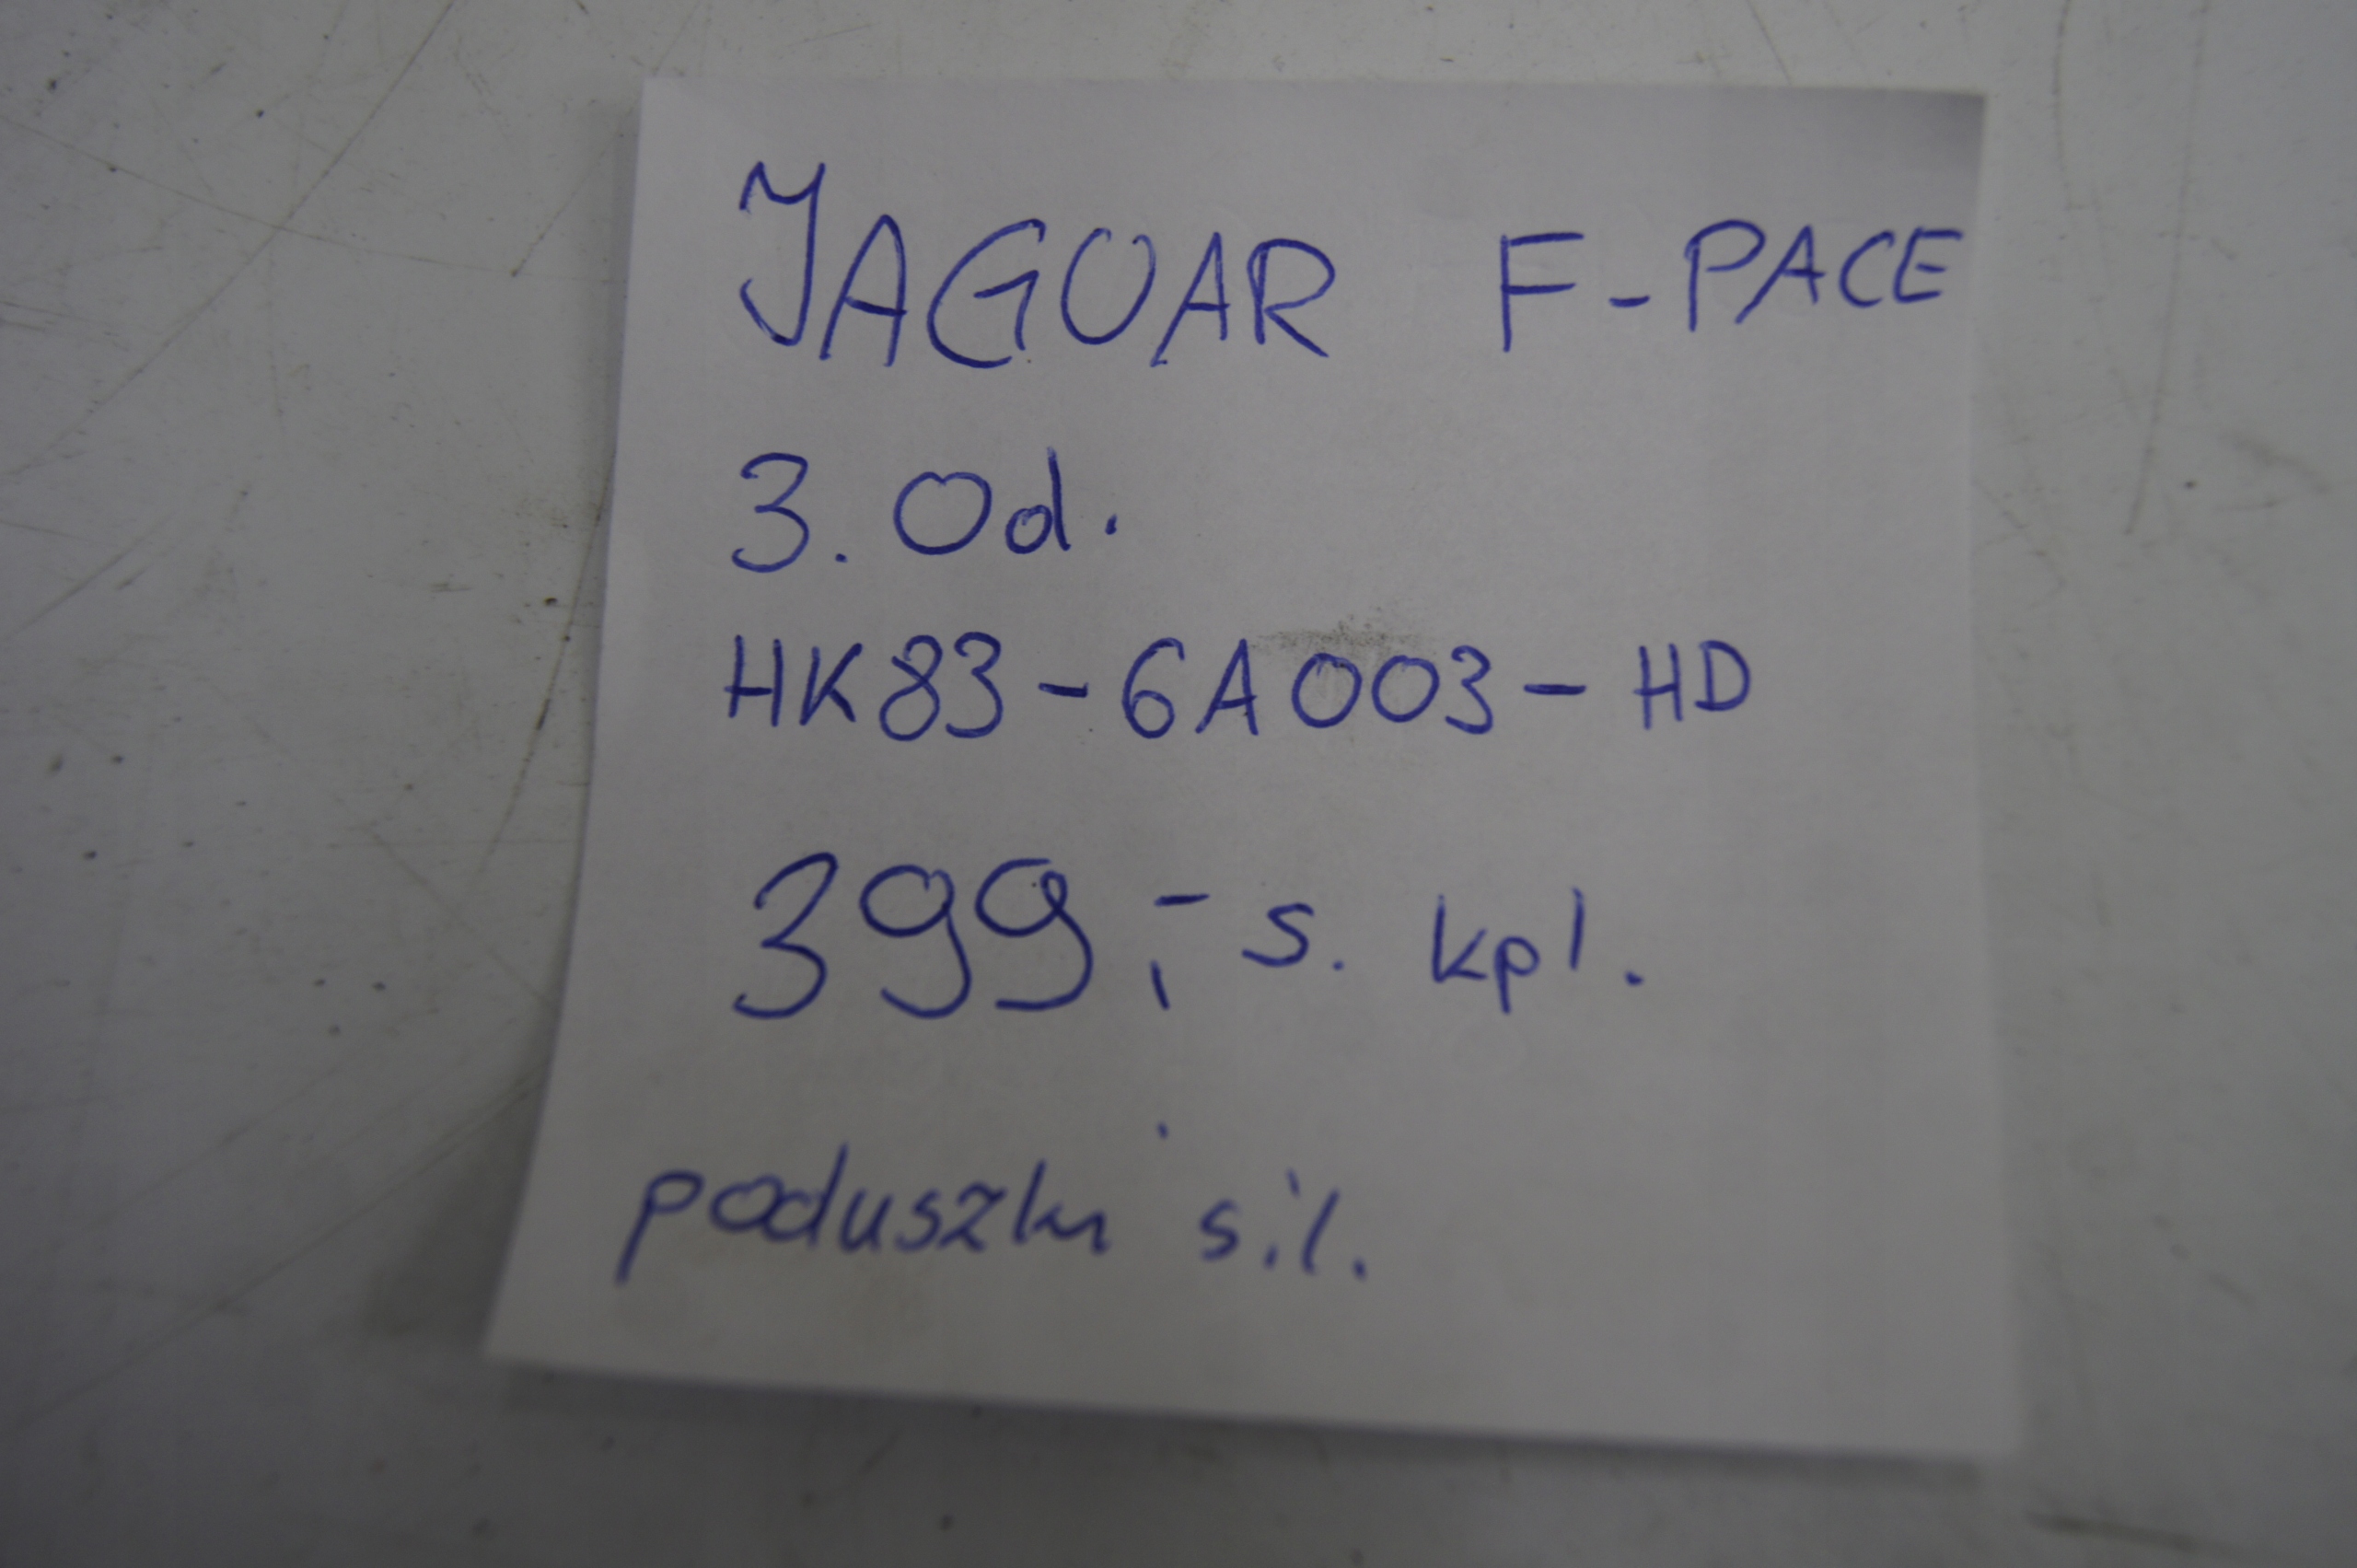 JAGUAR F-PACE
3.0d.
HK83-6A003-HD
399,- s. kpl.
poduszki sil.